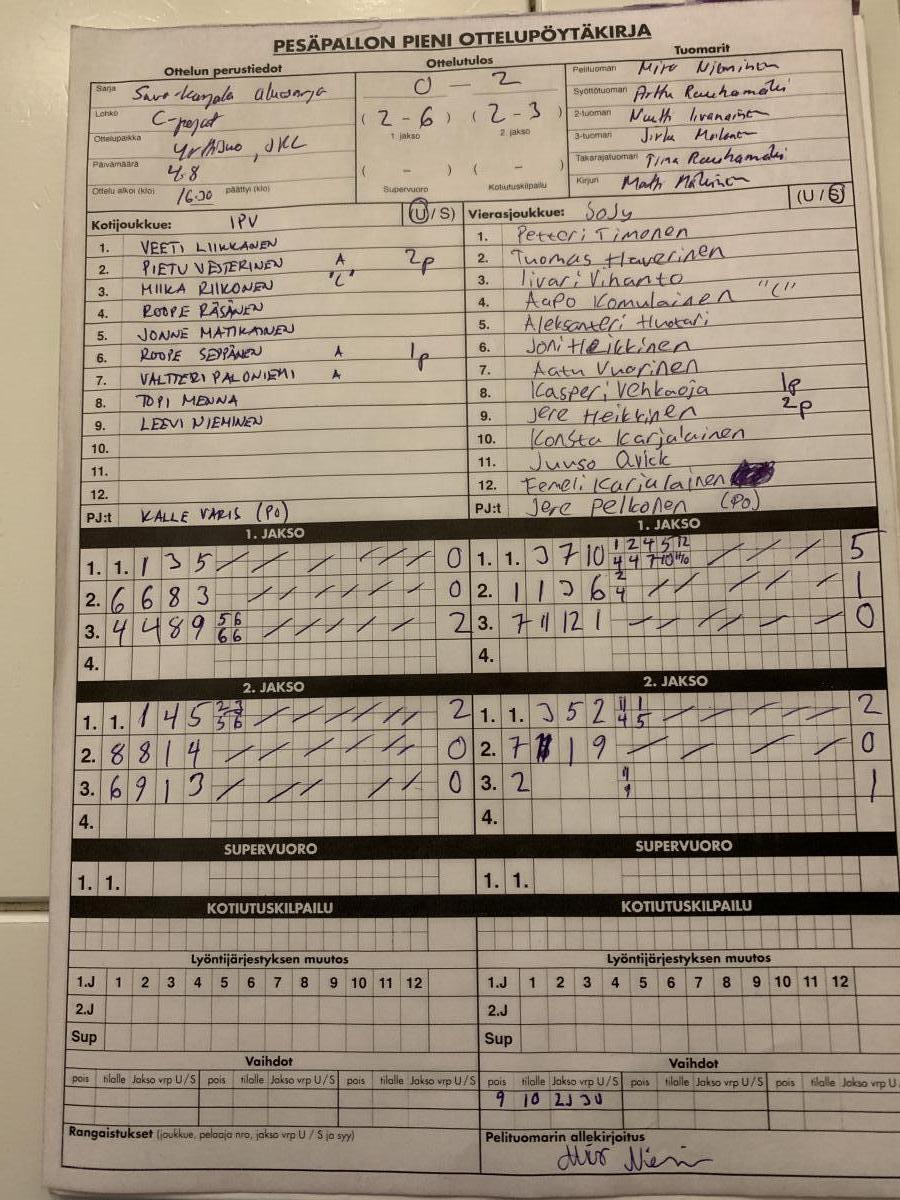 PESÄPALLON PIENI OTTELUPÖYTÄKIRJA
Ottelun perustiedot
Ottelutulos
Tuomarit
Sarja Savo-Karjala aluesarja
Lohko C-pojat
Ottelupaikka , JKL
Päivämäärä 4.8
Ottelu alkoi (klo) 16.30 päättyi (klo)
0 - 2
( 2 - 6 ) ( 2 - 3 )
1. jakso 2. jakso
( - ) ( - )
Supervuoro Kotiutuskilpailu
Pelituomari Miro Nieminen
Syöttötuomari Arttu Rauhamäki
2-tuomari Iivanainen
3-tuomari
Takarajatuomari Tiina Rauhamäki
Kirjuri Matti
Kotijoukkue: IPV (U/S)
1. VEETI LIIKKANEN
2. PIETU VESTERINEN A 2p
3. MIIKA RIIKONEN "C"
4. ROOPE RÄSÄNEN
5. JONNE MATIKAINEN
6. ROOPE SEPPÄNEN A 1p
7. VALTTERI PALONIEMI A
8. TOPI MENNA
9. LEEVI NIEMINEN
10.
11.
12.
PJ:t KALLE VARIS (PO)
Vierasjoukkue: SoJy (U/S)
1. Petteri Timonen
2. Tuomas Haverinen
3. Iivari Vihanto
4. Aapo Komulainen "C"
5. Aleksanteri Huotari
6. Joni Heikkinen
7. Aatu Vuorinen
8. Kasperi Vehkaoja 1p
9. Jere Heikkinen 2p
10. Konsta Karjalainen
11. Juuso Qvick
12. Eemeli Karjalainen
PJ:t Jere Pelkonen (PO)
1. JAKSO
1. 1. 1 3 5 0
2. 6 6 8 3 0
3. 4 4 8 9 5 6 6 6 2
4.
1. JAKSO
1. 1. 3 7 10 1 2 4 5 12 4 4 7 10 5
2. 1 1 3 6 2 4 1
3. 7 11 12 1 0
4.
2. JAKSO
1. 1. 1 4 5 2 3 5 6 2
2. 8 8 1 4 0
3. 6 9 1 3 0
4.
2. JAKSO
1. 1. 3 5 2 11 1 4 5 2
2. 7 1 9 0
3. 2 11 9 1
4.
SUPERVUORO
1. 1.
SUPERVUORO
1. 1.
KOTIUTUSKILPAILU
KOTIUTUSKILPAILU
Lyöntijärjestyksen muutos
1.J 1 2 3 4 5 6 7 8 9 10 11 12
2.J
Sup
Lyöntijärjestyksen muutos
1.J 1 2 3 4 5 6 7 8 9 10 11 12
2.J
Sup
Vaihdot
pois tilalle Jakso vrp U / S pois tilalle Jakso vrp U / S pois tilalle Jakso vrp U / S
Vaihdot
pois tilalle Jakso vrp U / S pois tilalle Jakso vrp U / S pois tilalle Jakso vrp U
9 10 2J 3U
Rangaistukset (joukkue, pelaaja nro, jakso vrp U / S ja syy)
Pelituomarin allekirjoitus